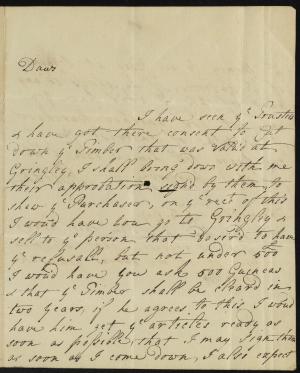 Daws
I have seen ye Trustees
& have got there consent to cut
down ye Timber that was valud at
Gringley, I shall bring down with me
their approbation signd by them, to
shew ye Purchaser, on ye rect of this
I woud have you go to Gringley &
sell to ye person that desir'd to have
ye refusall, but not under 500
I woud have you ask 500 Guineas
& that ye Timber shall be Stard in
two years, if he agrees to this I woud
have him get ye articles ready as
soon as possible, that I may sign them
as soon as I come down, I also expect